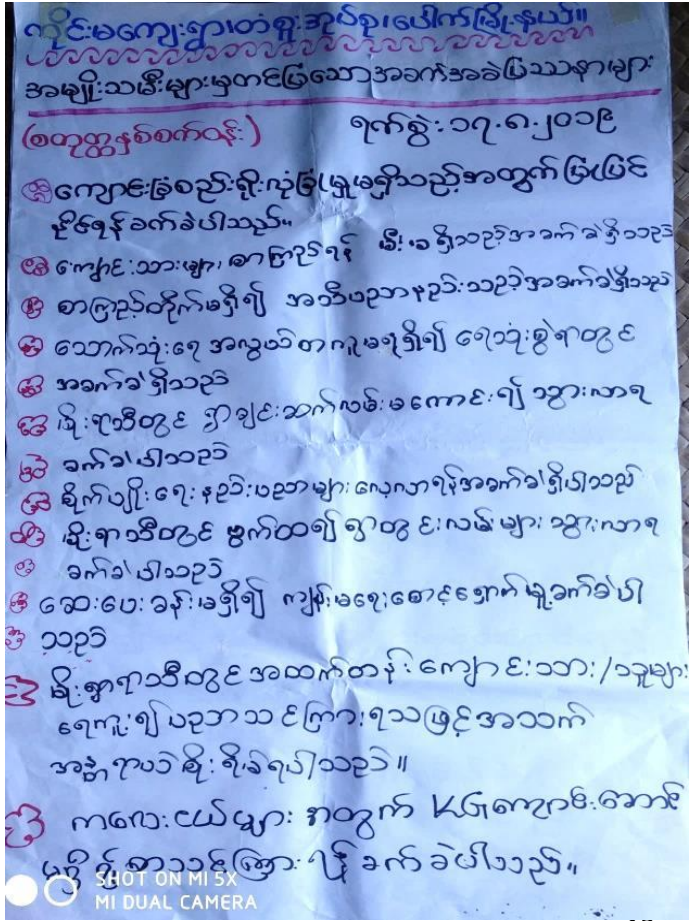 ကိုင်းမကျေးရွာ၊တံစူးအုပ်စု၊ပေါက်မြို့နယ်။
အမျိုးသမီးများမှတင်ပြသောအခက်အခဲပြဿနာများ
(စတုတ္ထနှစ်စက်ဝန်း) ရက်စွဲ၊ ၁၇.၆.၂၀၁၉
ကျောင်းခြံစည်းရိုးလုံခြုံမှုမရှိသည့်အတွက်ပြုပြင်
နိုင်ရန်ခက်ခဲပါသည်။
ကျောင်းသားများ စာကြည့်ရန် မီးမရှိသည့်အခက်ခဲရှိသည်
စာကြည့်တိုက်မရှိ၍ အသိပညာနည်းသည့်အခက်ခဲရှိသည်
သောက်သုံးရေ အလွယ်တကူမရရှိ၍ ရေသုံးစွဲရာတွင်
အခက်ခဲရှိသည်
မိုးရာသီတွင် ရွာချင်းဆက်လမ်းမကောင်း၍ သွားလာရ
ခက်ခဲပါသည်
စိုက်ပျိုးရေးနည်းပညာများလေ့လာရန်အခက်ခဲရှိပါသည်
မိုးရာသီတွင် ဗွက်ထ၍ရွာတွင်းလမ်းများ သွားလာရ
ခက်ခဲပါသည်
ဆေးပေးခန်းမရှိ၍ ကျန်းမာရေးစောင့်ရှောက်မှု့ခက်ခဲပါ
သည်
မိုးရွာရာသီတွင်အထက်တန်းကျောင်းသား/သူများ
ရေကူး၍ပညာသင်ကြားရသဖြင့်အသက်
အန္တရာယ်စိုးရိမ်ရပါသည်။
ကလေးငယ်များအတွက် KG ကျောင်းဆောင်
မရှိ၍စာသင်ကြားရန်ခက်ခဲပါသည်။
SHOT ON MI 5X
MI DUAL CAMERA